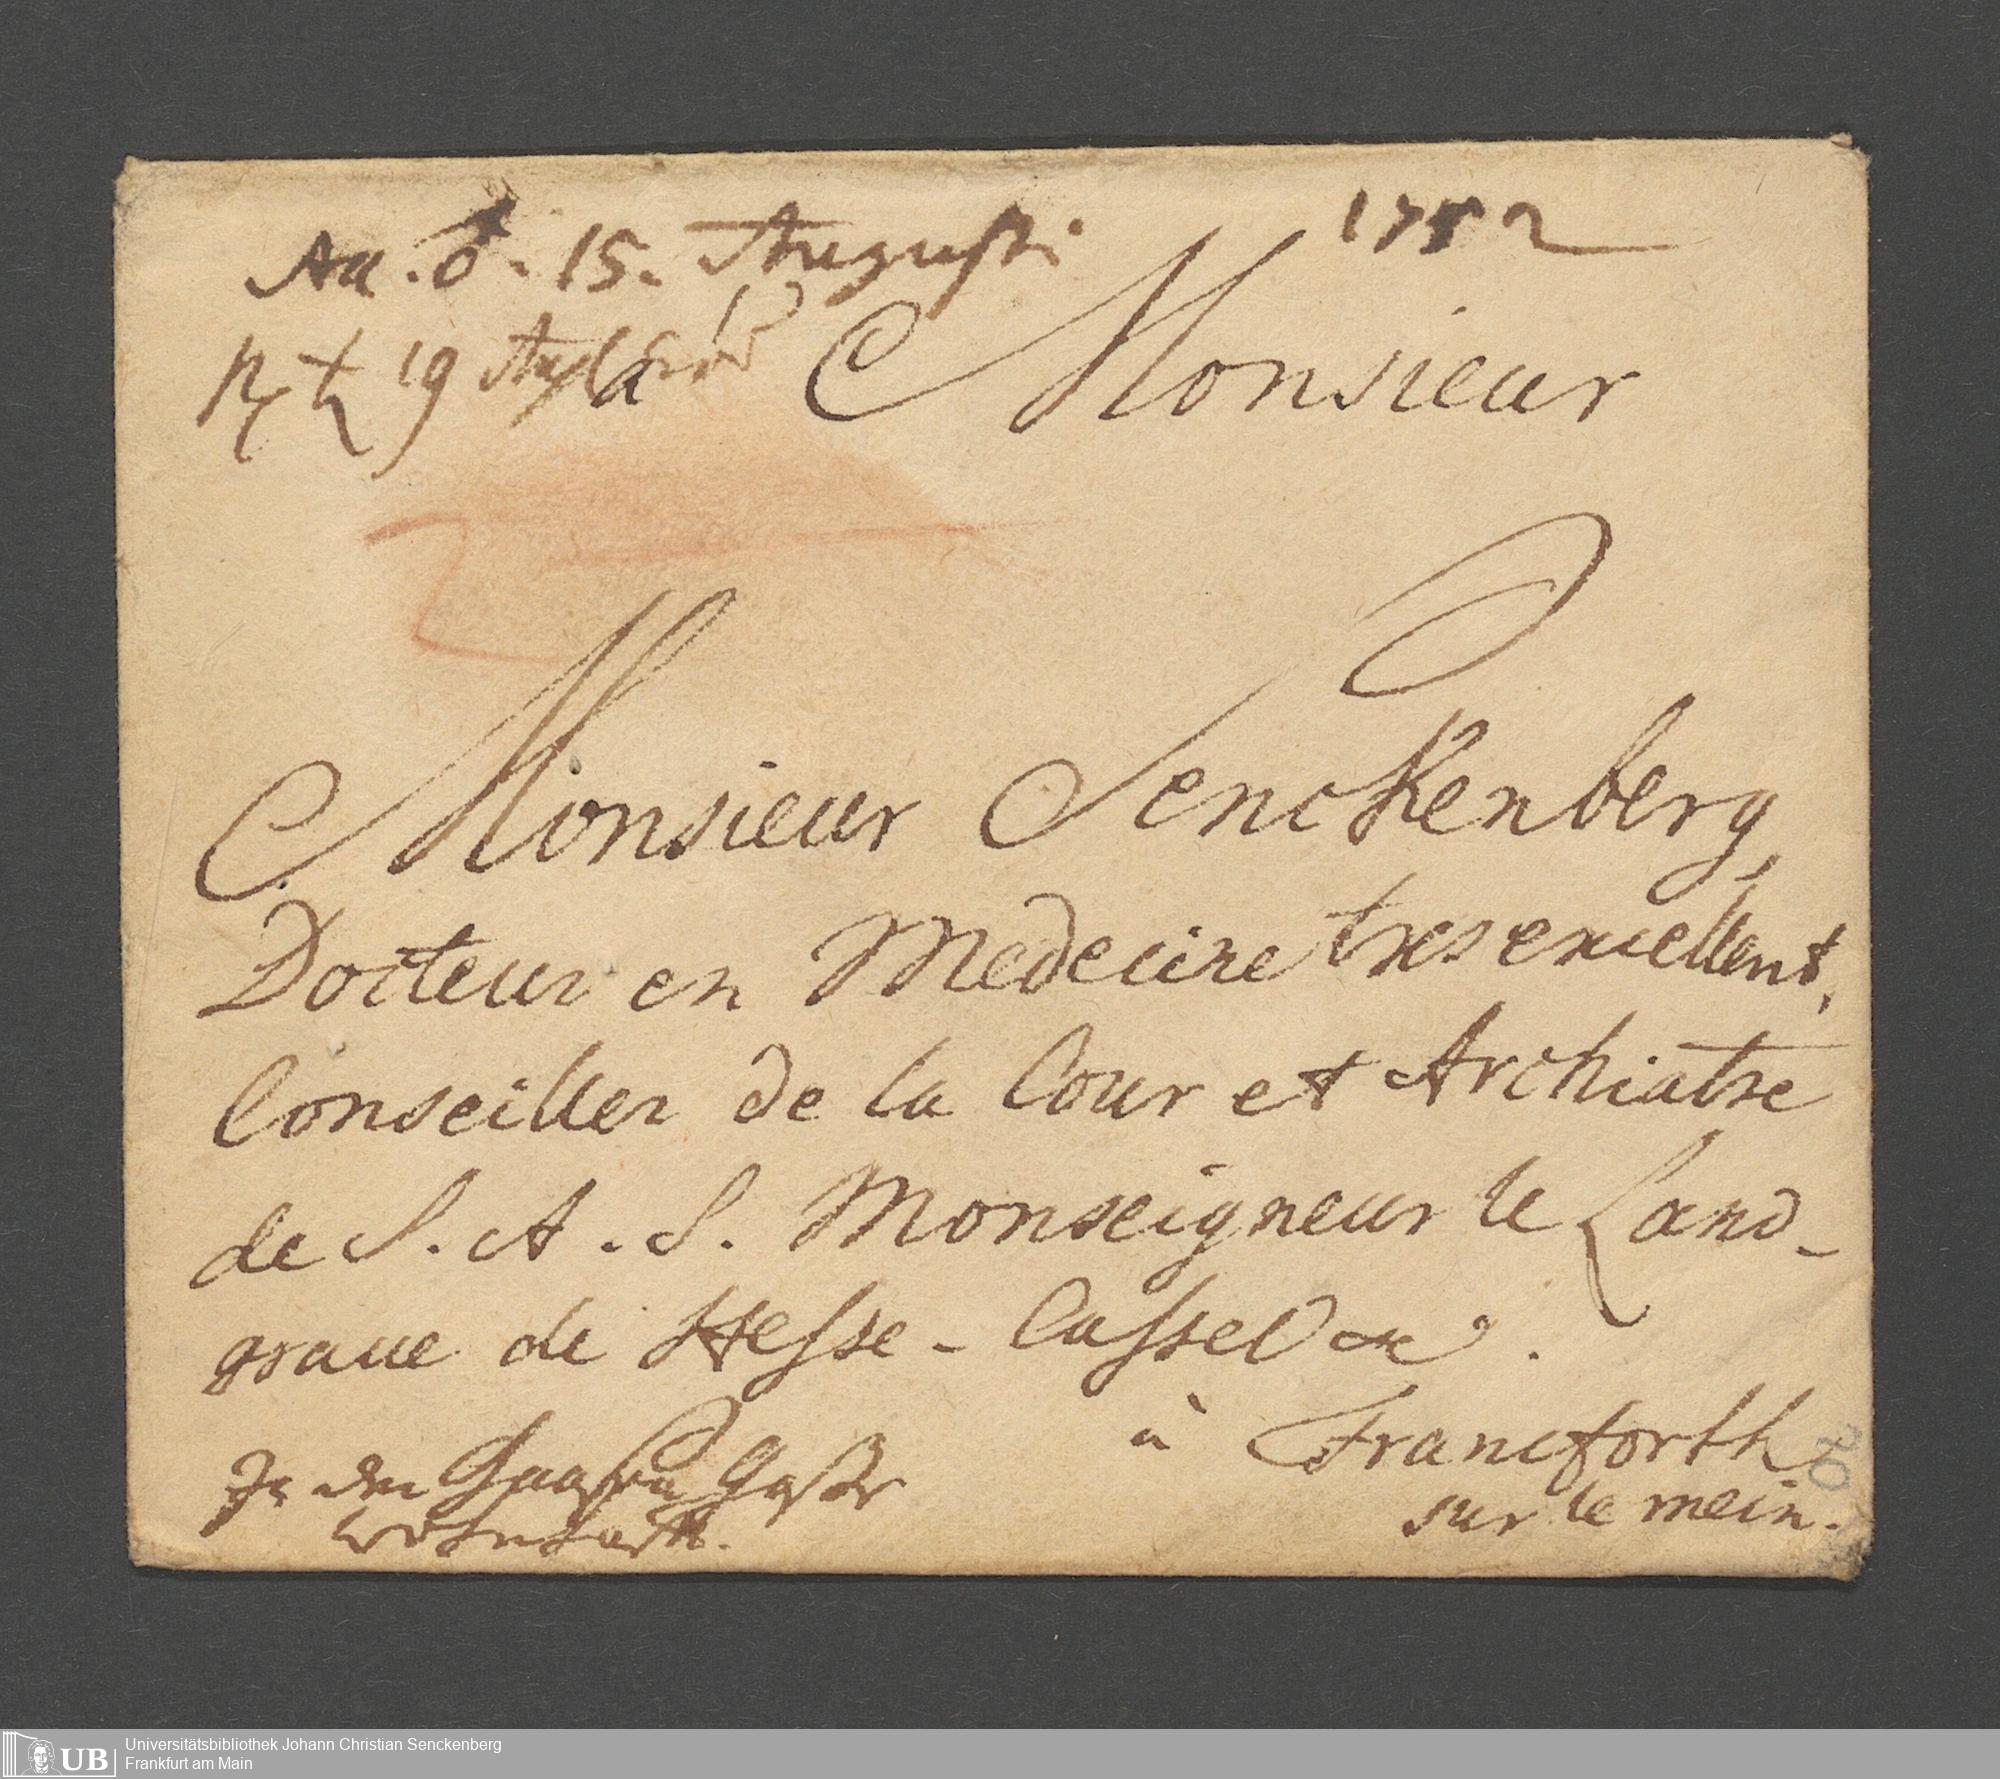 Acc. ♂. 15. Augusti 1752
Rx ♄ 19 Aug
a Monsieur
Monsieur Senckenberg,
Docteur en Medecine tres excellent,
Conseiller de la Cour et Archiatre
de S. A. S. Monseigneur le Land-
graue de Hesse-Cassel &c.
à Francforth
sur le mein.
In der Haasen Gaße
wohnhafft.
20
Universitätsbibliothek Johann Christian Senckenberg
Frankfurt am Main
UB